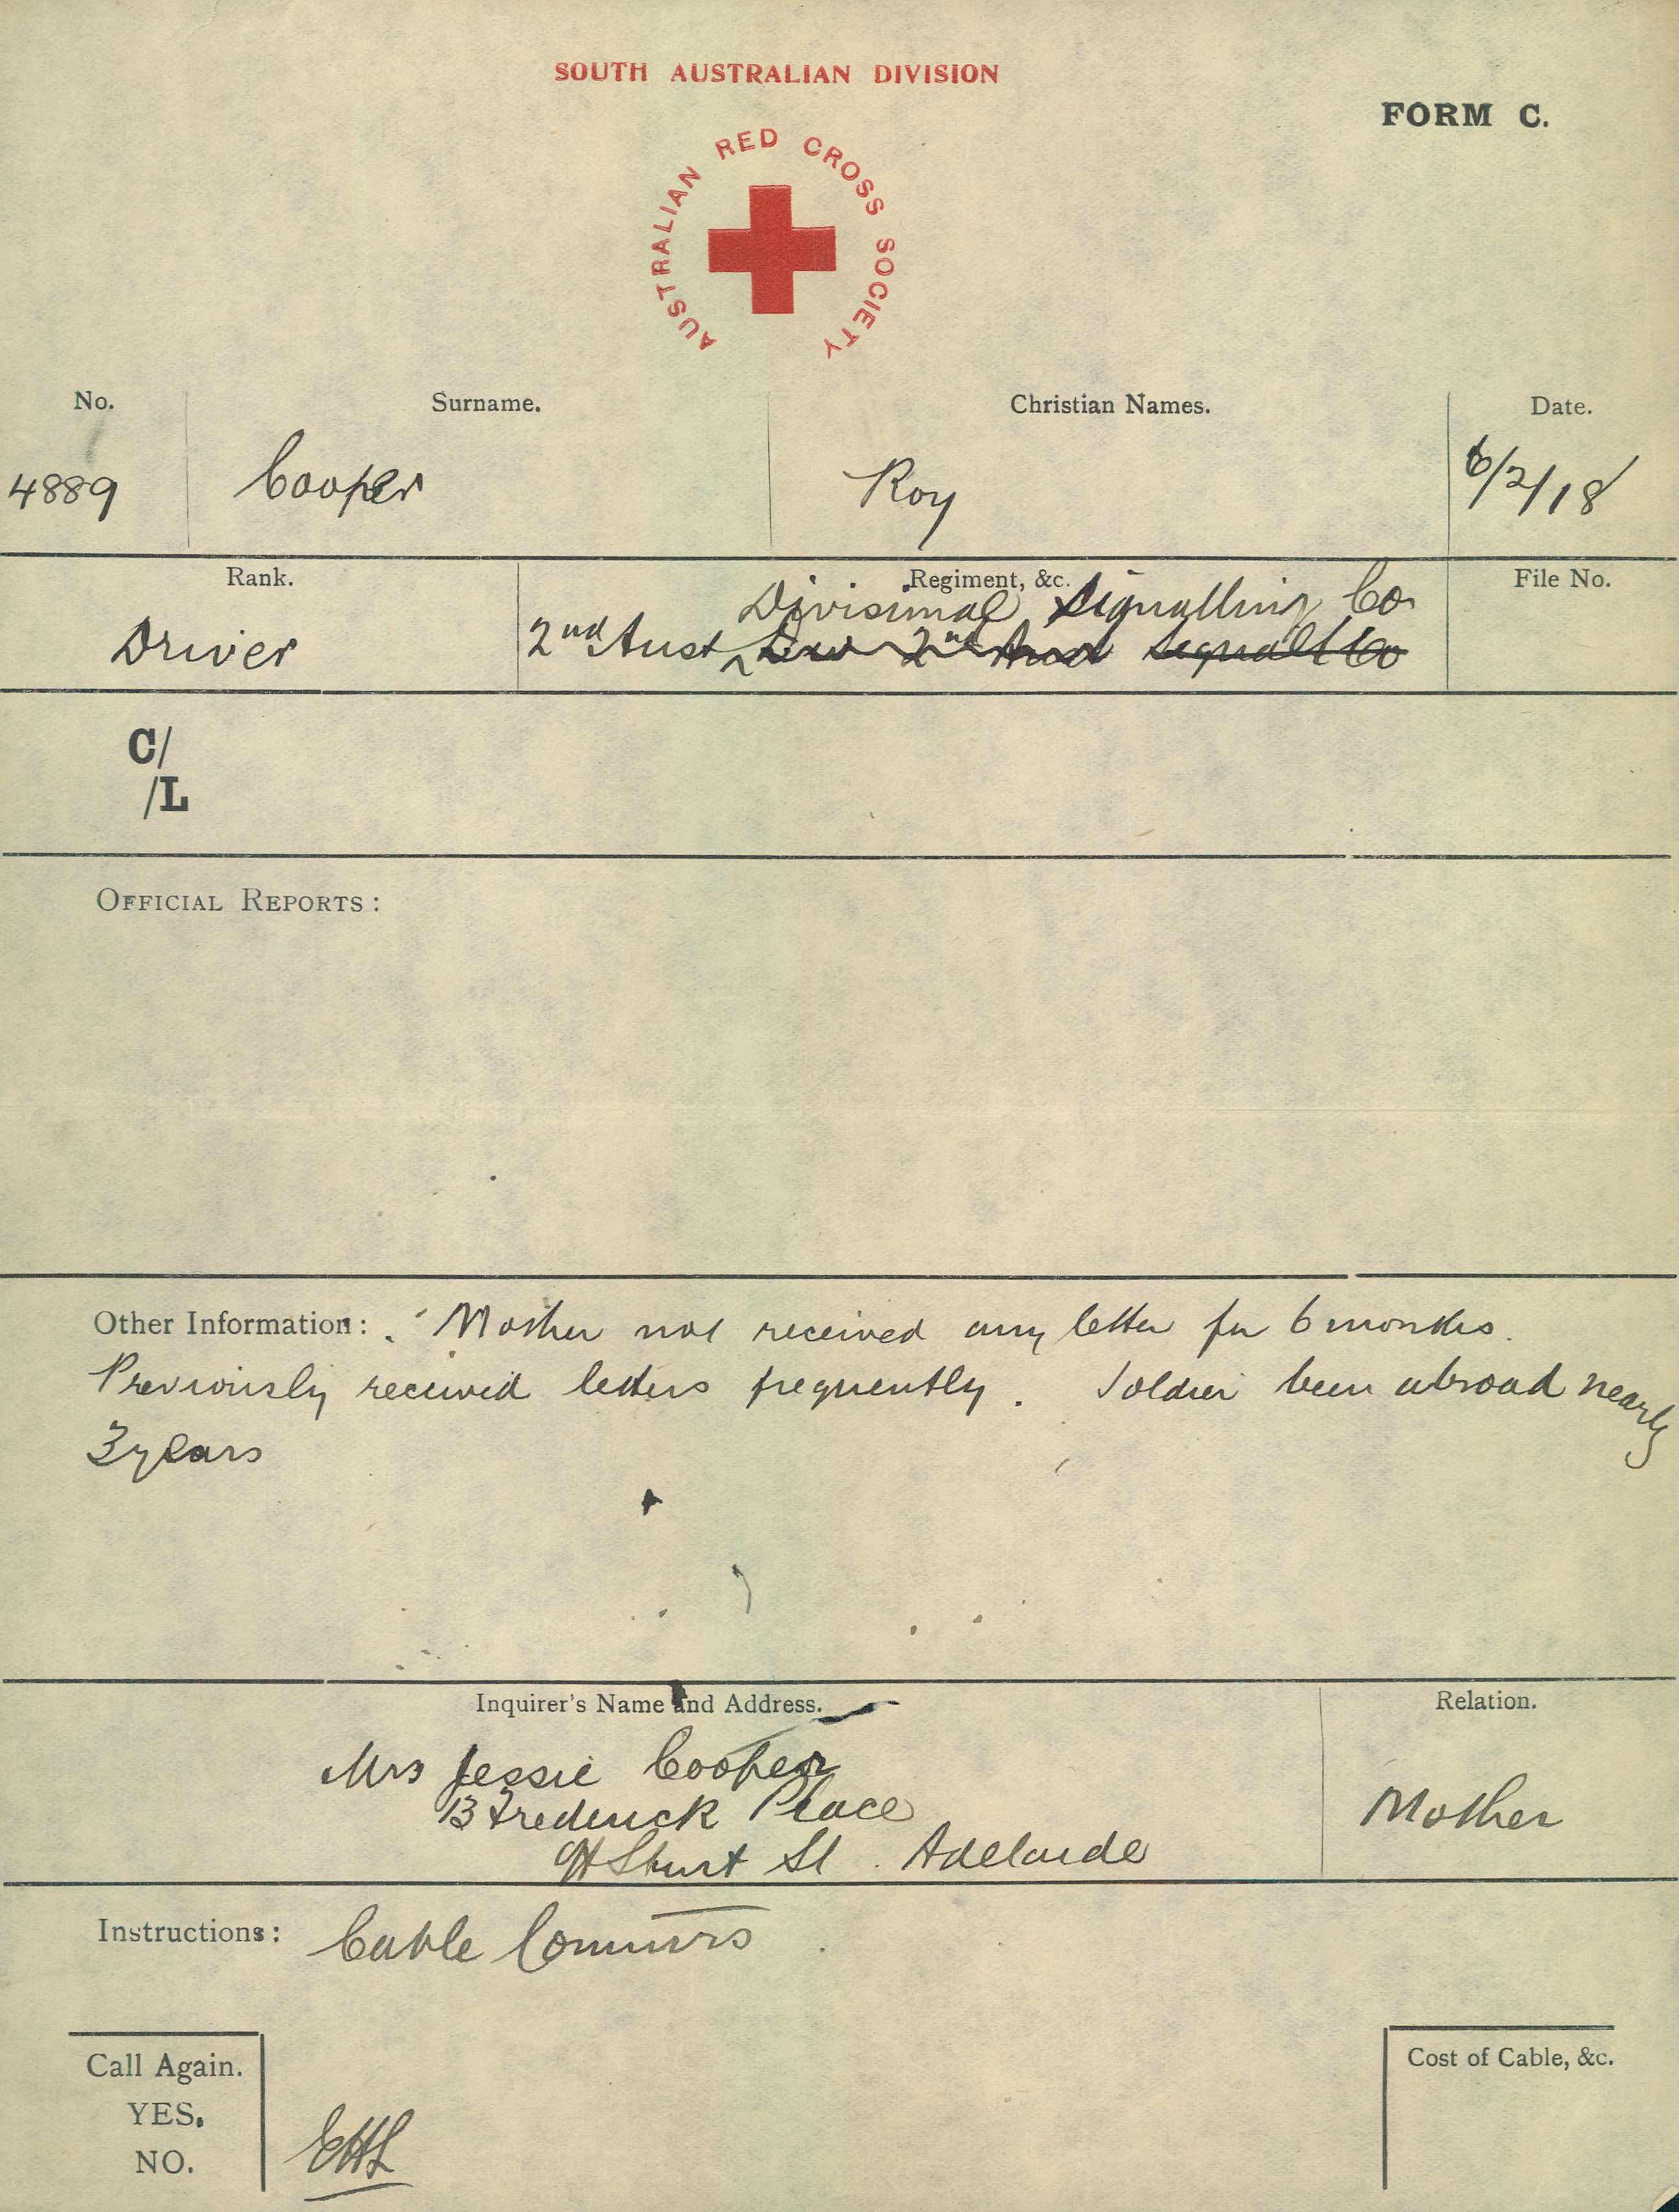 SOUTH AUSTRALIAN DIVISION
FORM C.
AUSTRALIAN RED CROSS SOCIETY
No. Surname. Christian Names. Date.
4889 Cooper Roy 6/2/18
Rank. Regiment, &c. File No.
Divisional Signalling Co
Driver 2nd Aust Div 2nd Aust Signall Co
C/
/L
OFFICIAL REPORTS:
Other Information: Mother not received any letter for 6 months.
Previously received letters frequently. Soldier been abroad nearly
3 years
Inquirer's Name and Address. Relation.
Mrs Jessie Cooper
13 Frederick Place
Mother
Sturt St. Adelaide
Instructions: Cable Commrs
Call Again.
YES.
NO.
EHL
Cost of Cable, &c.